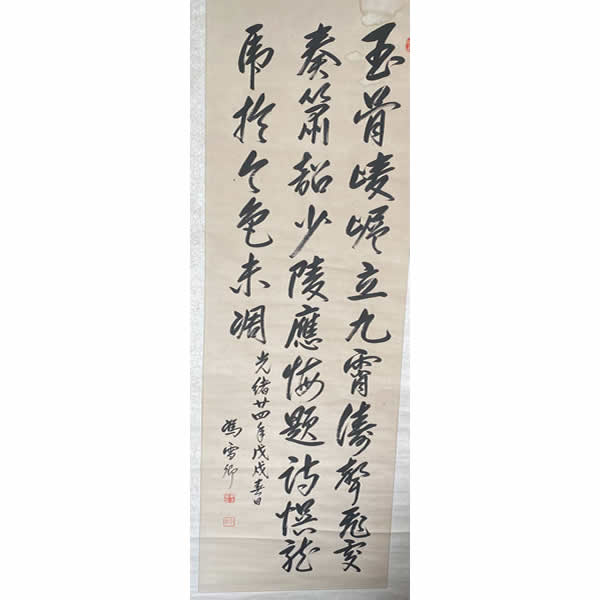 玉骨崚嶒立九霄濤聲飛
奏簫韶少陵應悔題詩悞龍
虎於今色未凋
光緒廿四年戊戌春日
馮雪卿